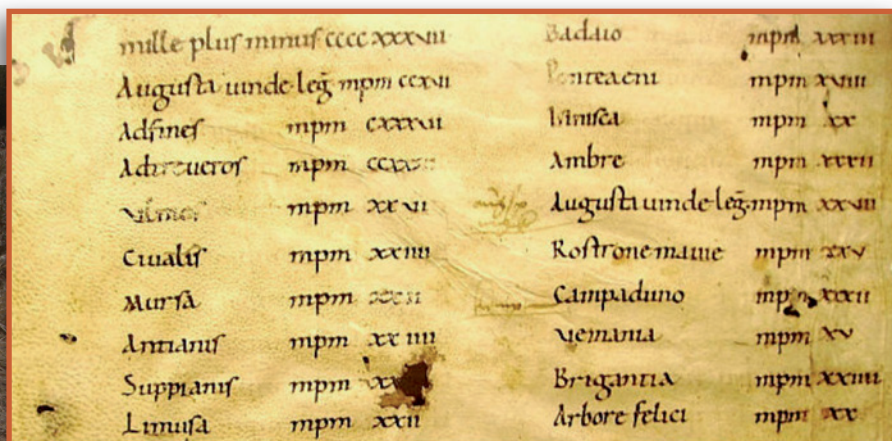 mille plus minus cccc xxxvii
Augusta uinde leḡ mpm ccxvi
Adfines mpm cxxxvi
Adtreueros mpm
mpm xxvi
Ciualis mpm xxiiii
Mursa mpm
Antianis mpm xxiiii
Suppianis mpm
Limusa mpm xxii
Badaio mpm xxxiii
Ponteaeni mpm xviii
mpm xx
Ambre mpm xxxii
Augusta uinde leḡ mpm xxviii
Rostronemauie mpm xxv
Campaduno mpm xxxii
Vemania mpm xv
Brigantia mpm xxiiii
Arbore felici mpm xx